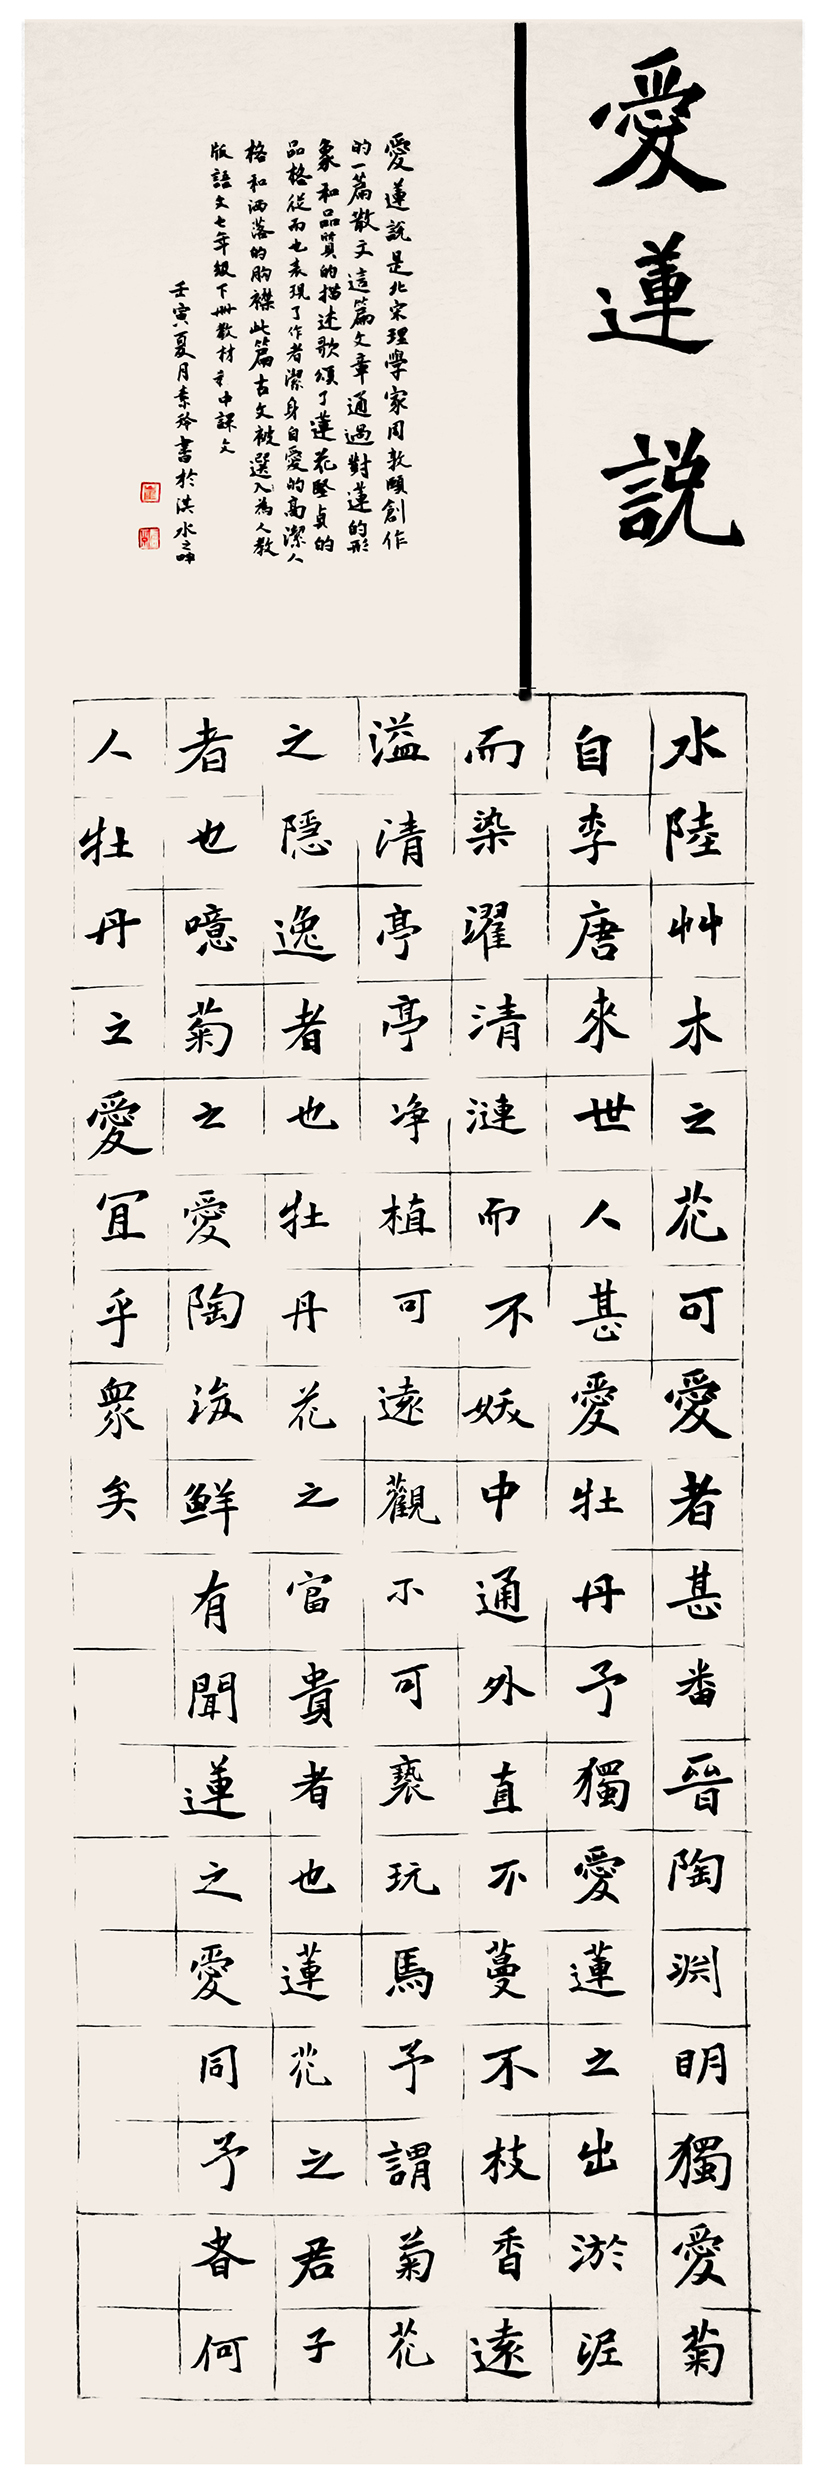 愛蓮説
水陸艸木之花可愛者甚番晉陶渊明獨愛菊
自李唐來世人甚愛牡丹予獨愛蓮之出淤泥
而染濯清漣而不妖中通外直不蔓不枝香遠
溢清亭亭净植可遠觀不可褻玩馬予謂菊花
之隱逸者也牡丹花之富貴者也蓮花之君子
者也噫菊之愛陶後鮮有聞蓮之愛同予者何
人牡丹之愛宜乎衆矣
愛蓮説是北宋理學家周敦頤創作
的一篇散文這篇文章通過對蓮的形
象和品質的描述歌頌了蓮花堅貞的
品格從而也表現了作者潔身自愛的高潔人
格和洒落的胸襟此篇古文被選入為人教
版語文七年級下册教材中課文
壬寅夏月素玲書於淇水之畔